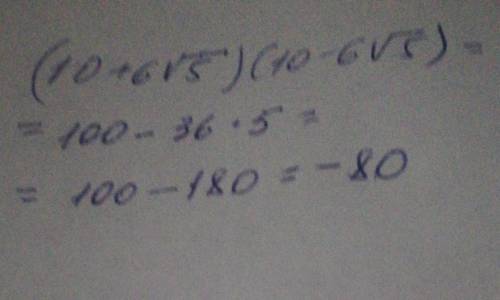 (10+6√5)(10-6√5)=
= 100 - 36 · 5 =
= 100 - 180 = -80